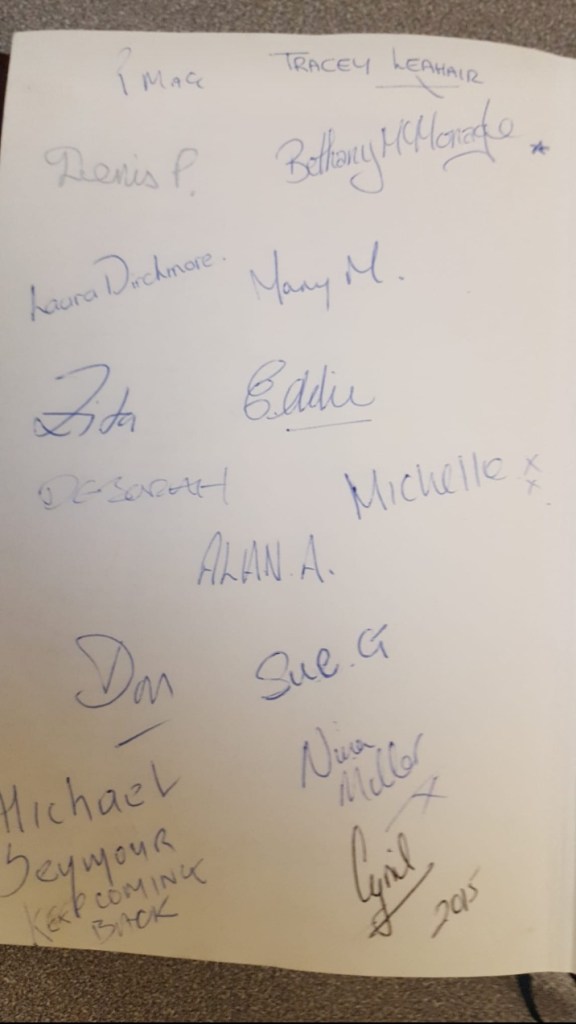 P Mac
TRACEY LEAHAIR
Denis P.
Bethany McMonagle
Laura Dirchmore.
Mary M.
Zita
Eddie
DEBORAH
Michelle x
x
ALAN. A.
Don
Sue. G
Michael
Seymour
KEEP COMING
BACK
Nina
Miller
x
Cyril
2015